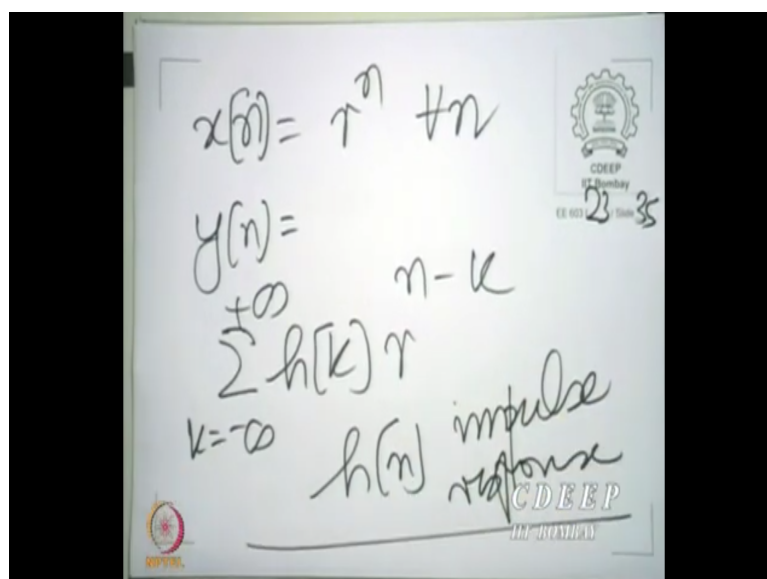 x[n] = r^n ∀n
CDEEP
IIT Bombay
EE 603 L 23 / Slide 35
y[n] =
+∞
n-k
Σ h[k] r
k=-∞
h[n] impulse
response
CDEEP
IIT BOMBAY
NPTEL